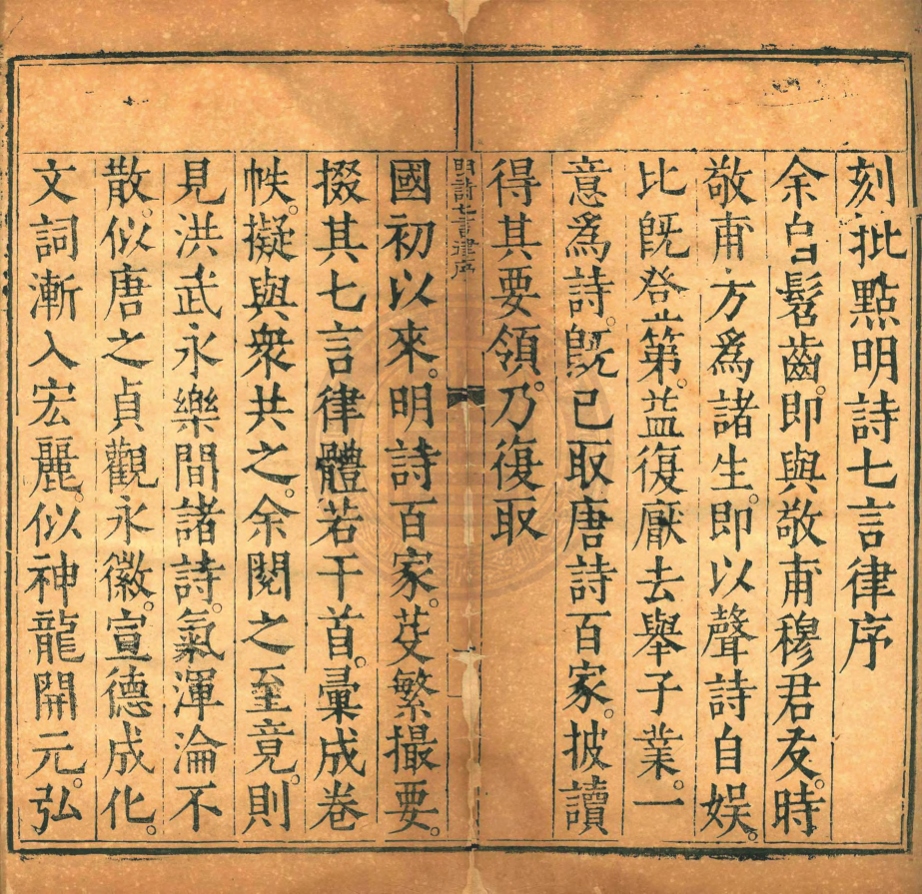 刻批點明詩七言律序
余自髫齒。即與敬甫穆君友。時
敬甫方爲諸生。即以聲詩自娱。
比旣登第。益復厭去舉子業。一
意爲詩。旣已取唐詩百家。披讀
得其要領。乃復取
明詩七言律序
一
國初以來。明詩百家。芟繁撮要。
掇其七言律體若干首。彙成卷
帙。擬與衆共之。余閱之至竟。則
見洪武永樂間諸詩。氣渾淪不
散。似唐之貞觀永徽。宣德成化。
文詞漸入宏麗。似神龍開元。弘